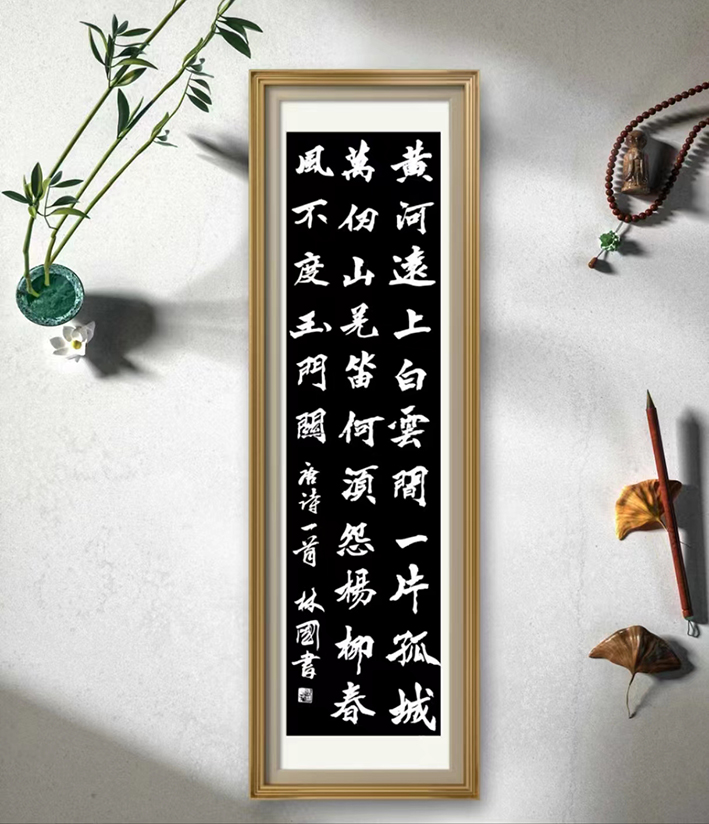 黄河遠上白雲間一片孤城
萬仞山羌笛何須怨楊柳春
風不度玉門關 唐诗一首 林國書